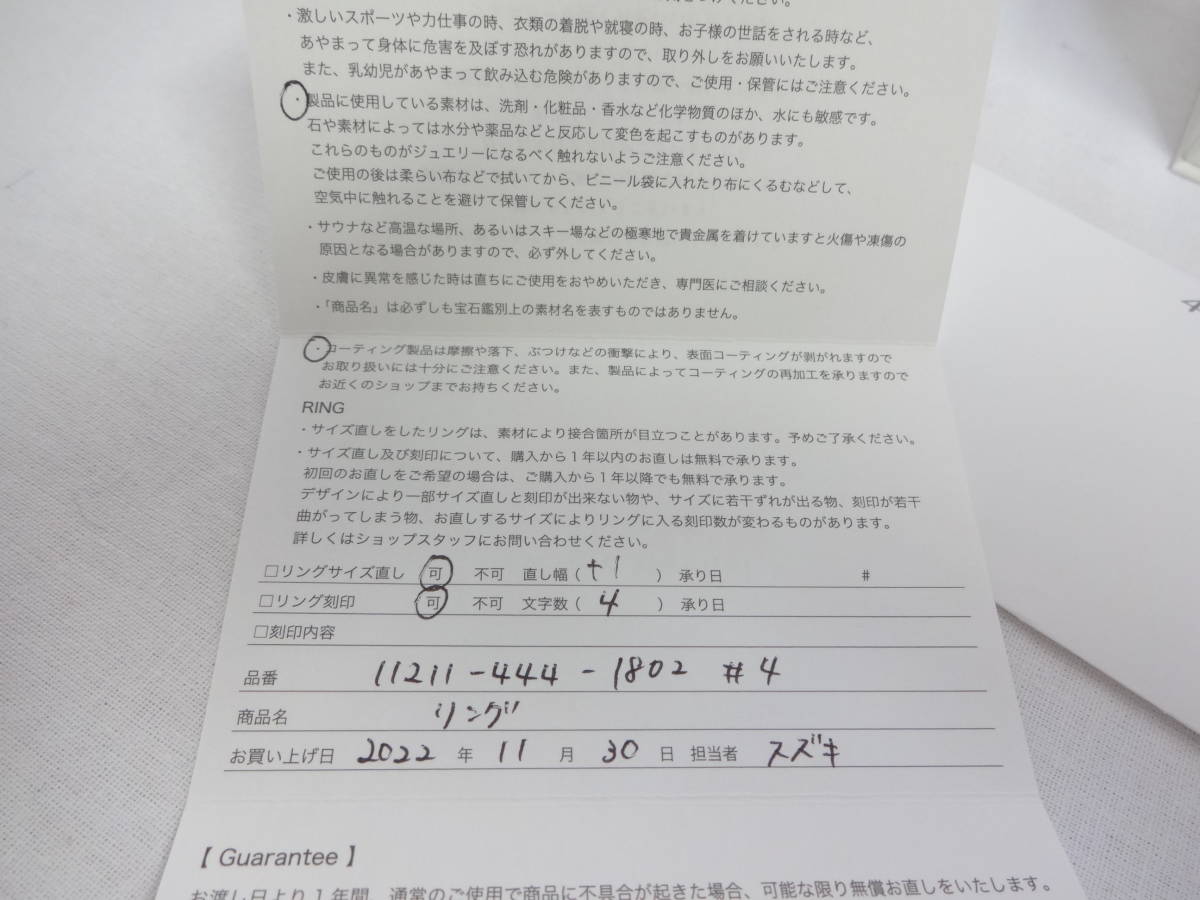 ・激しいスポーツや力仕事の時、衣類の着脱や就寝の時、お子様の世話をされる時など、
あやまって身体に危害を及ぼす恐れがありますので、取り外しをお願いいたします。
また、乳幼児があやまって飲み込む危険がありますので、ご使用・保管にはご注意ください。
・製品に使用している素材は、洗剤・化粧品・香水など化学物質のほか、水にも敏感です。
石や素材によっては水分や薬品などと反応して変色を起こすものがあります。
これらのものがジュエリーになるべく触れないようご注意ください。
ご使用の後は柔らい布などで拭いてから、ビニール袋に入れたり布にくるむなどして、
空気中に触れることを避けて保管してください。
・サウナなど高温な場所、あるいはスキー場などの極寒地で貴金属を着けていますと火傷や凍傷の
原因となる場合がありますので、必ず外してください。
・皮膚に異常を感じた時は直ちにご使用をおやめいただき、専門医にご相談ください。
・「商品名」は必ずしも宝石鑑別上の素材名を表すものではありません。
・コーティング製品は摩擦や落下、ぶつけなどの衝撃により、表面コーティングが剥がれますので
お取り扱いには十分にご注意ください。また、製品によってコーティングの再加工を承りますので
お近くのショップまでお持ちください。
RING
・サイズ直しをしたリングは、素材により接合箇所が目立つことがあります。予めご了承ください。
・サイズ直し及び刻印について、購入から1年以内のお直しは無料で承ります。
初回のお直しをご希望の場合は、ご購入から1年以降でも無料で承ります。
デザインにより一部サイズ直しと刻印が出来ない物や、サイズに若干ずれが出る物、刻印が若干
曲がってしまう物、お直しするサイズによりリングに入る刻印数が変わるものがあります。
詳しくはショップスタッフにお問い合わせください。
□リングサイズ直し 可 不可 直し幅( +1 ) 承り日 #
□リング刻印 可 不可 文字数( 4 ) 承り日
□刻印内容
品番 11211-444-1802 #4
商品名 リング
お買い上げ日 2022 年 11 月 30 日 担当者 スズキ
【 Guarantee 】
お渡し日より1年間、通常のご使用で商品に不具合が起きた場合、可能な限り無償お直しをいたします。